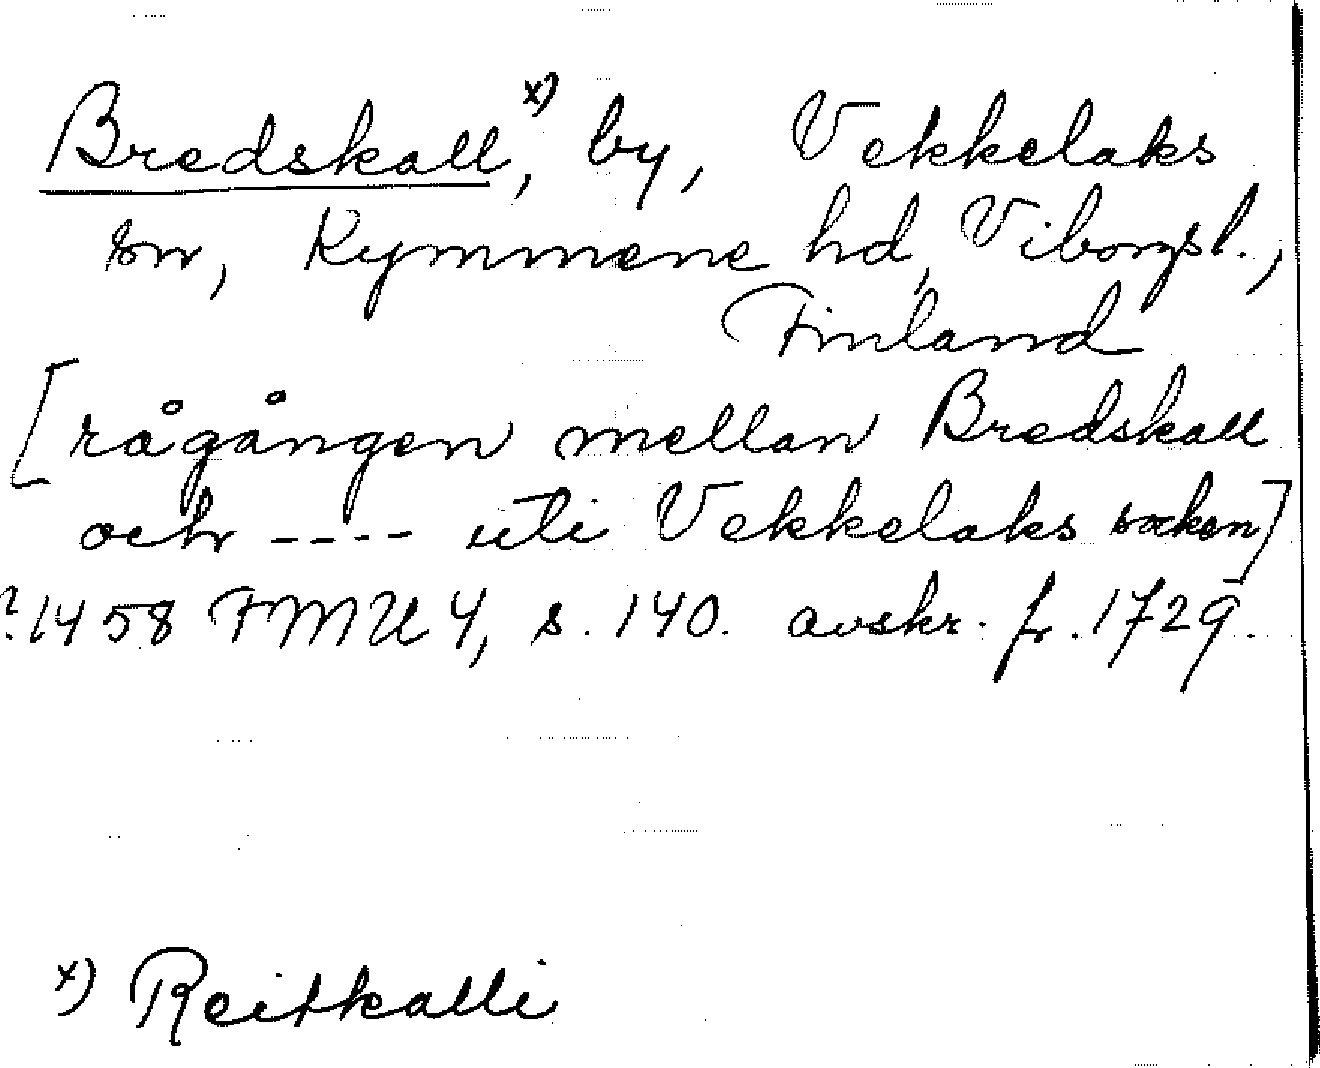 Bredskall,ˣ⁾ by, Vekkelaks
sn, Kymmene hd, Viborgsl.,
Finland
[rågången mellan Bredskall
och ---- uti Vekkelaks socken]
?1458 FMU 4, s. 140. avskr. fr. 1729.
x) Reitkalli